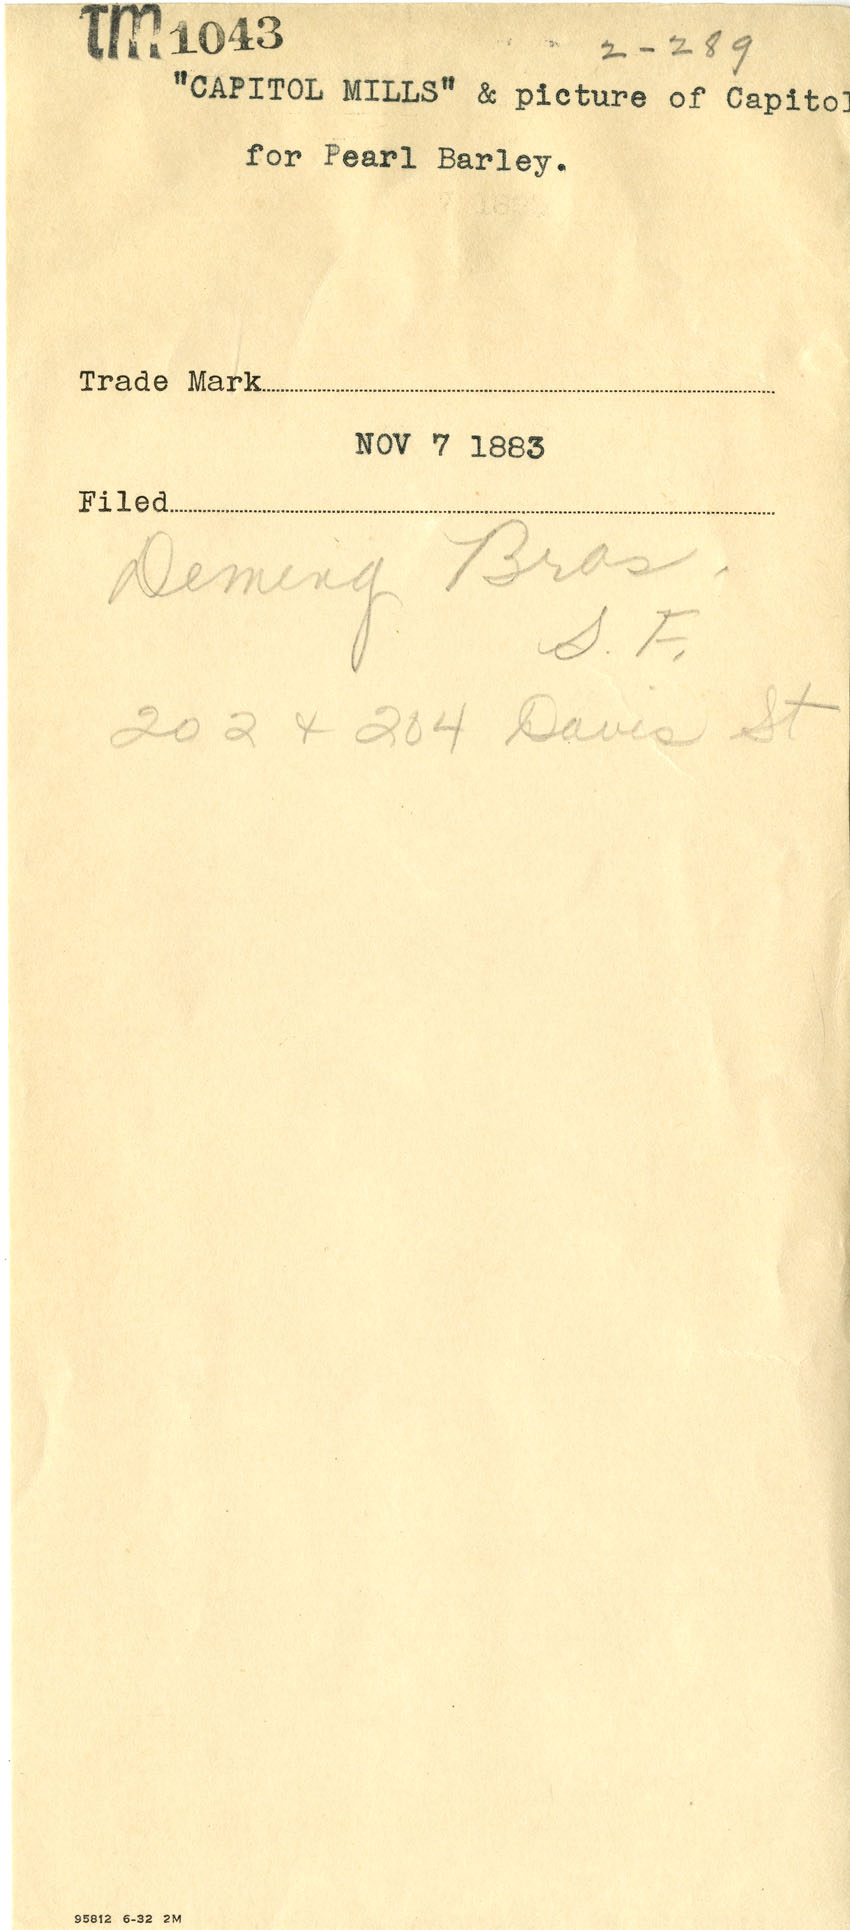 TM 1043 2-289
"CAPITOL MILLS" & picture of Capitol
for Pearl Barley.
Trade Mark
NOV 7 1883
Filed
Deming Bros.
S. F.
202 & 204 Davis St
95812 6-32 2M